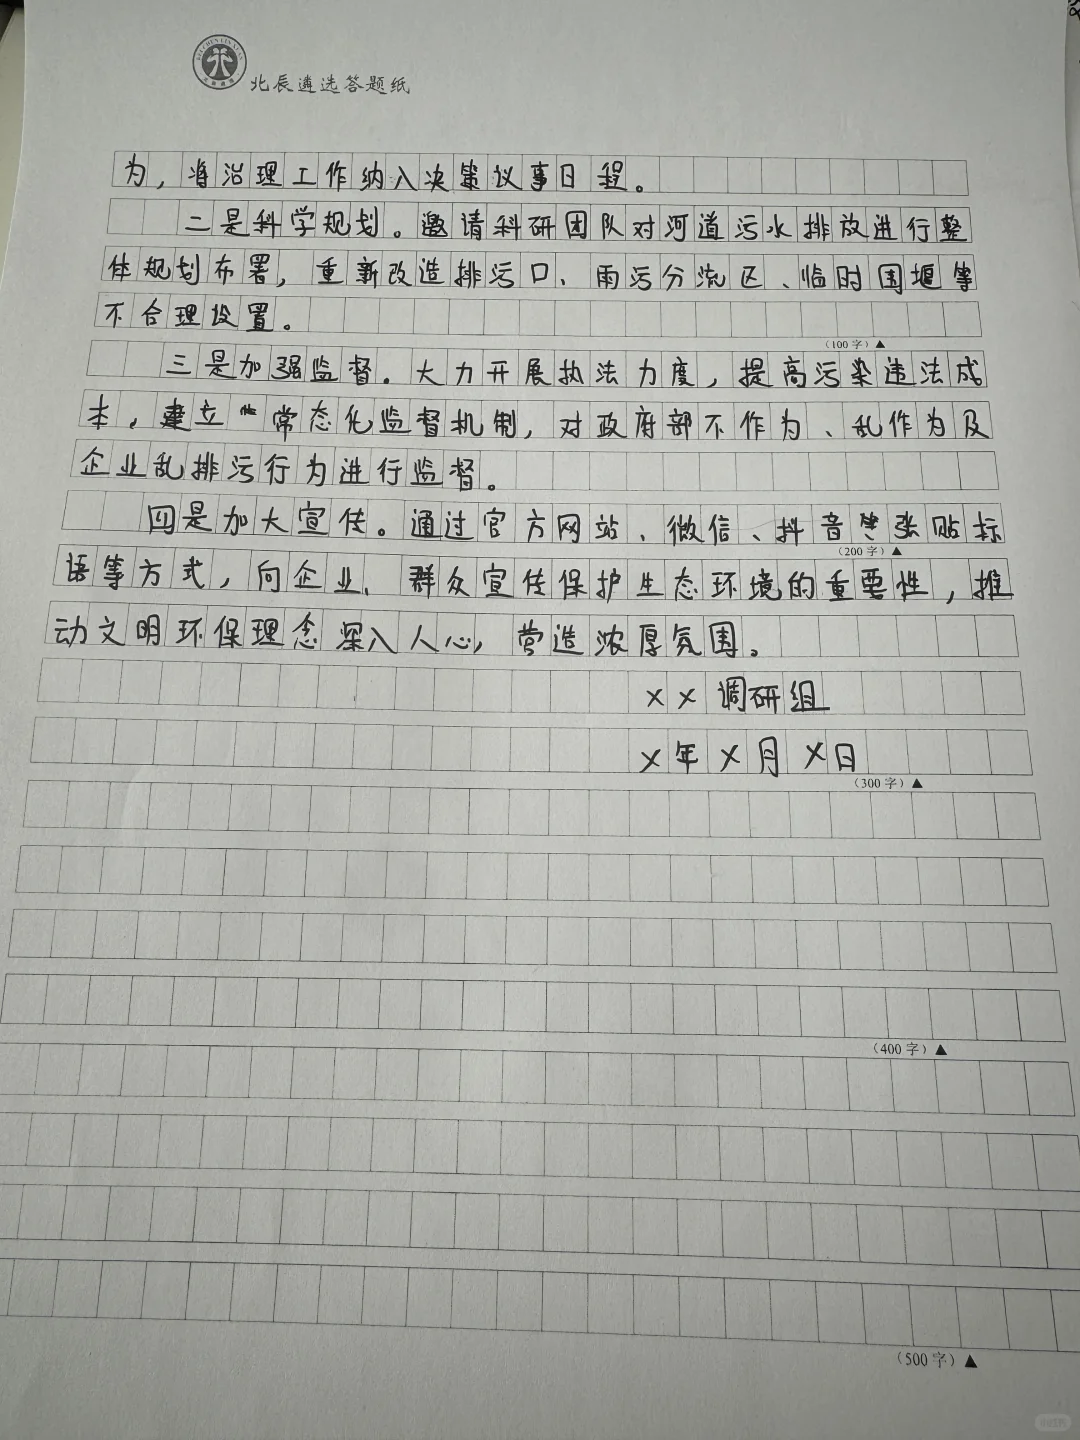 北辰遴选答题纸
为，将治理工作纳入决策议事日程。
二是科学规划。邀请科研团队对河道污水排放进行整
体规划布署，重新改造排污口、雨污分流区、临时围堰等
不合理设置。
（100 字）▲
三是加强监督。大力开展执法力度，提高污染违法成
本，建立常态化监督机制，对政府部不作为、乱作为及
企业乱排污行为进行监督。
四是加大宣传。通过官方网站、微信、抖音张贴标
（200 字）▲
语等方式，向企业、群众宣传保护生态环境的重要性，推
动文明环保理念深入人心，营造浓厚氛围。
××调研组
×年×月×日
（300 字）▲
（400 字）▲
（500 字）▲